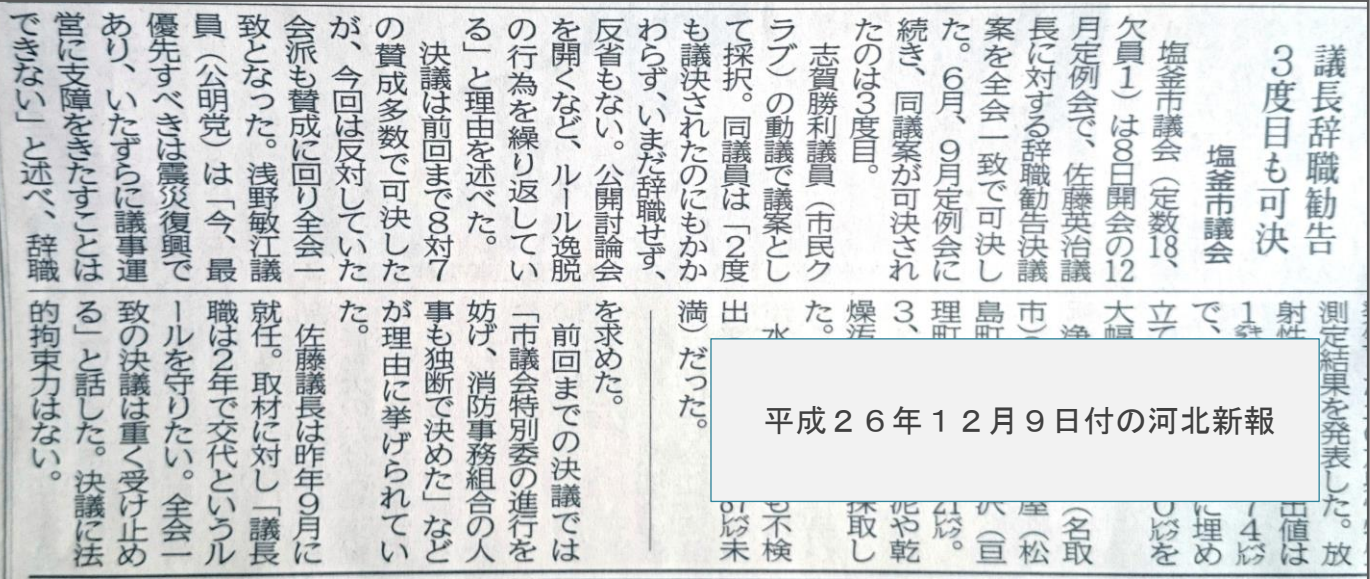 議長辞職勧告
3度目も可決
塩釜市議会
塩釜市議会（定数18、
欠員1）は8日開会の12
月定例会で、佐藤英治議
長に対する辞職勧告決議
案を全会一致で可決し
た。6月、9月定例会に
続き、同議案が可決され
たのは3度目。
志賀勝利議員（市民ク
ラブ）の動議で議案とし
て採択。同議員は「2度
も議決されたのにもかか
わらず、いまだ辞職せず、
反省もない。公開討論会
を開くなど、ルール逸脱
の行為を繰り返してい
る」と理由を述べた。
決議は前回まで8対7
の賛成多数で可決した
が、今回は反対していた
会派も賛成に回り全会一
致となった。浅野敏江議
員（公明党）は「今、最
優先すべきは震災復興で
あり、いたずらに議事運
営に支障をきたすことは
できない」と述べ、辞職
を求めた。
前回までの決議では
「市議会特別委の進行を
妨げ、消防事務組合の人
事も独断で決めた」など
が理由に挙げられてい
た。
佐藤議長は昨年9月に
就任。取材に対し「議長
職は2年で交代というル
ールを守りたい。全会一
致の決議は重く受け止め
る」と話した。決議に法
的拘束力はない。
測定結果を発表した。放
射性 出値は
74ベクレル
で、 に埋め
立て ベクレルを
大幅
（名取
市）
島町 （亘
理町 21ベクレル。
3、 や乾
燥 採取し
た。
水 も不検
出 ベクレル未
満）だった。
平成２６年１２月９日付の河北新報